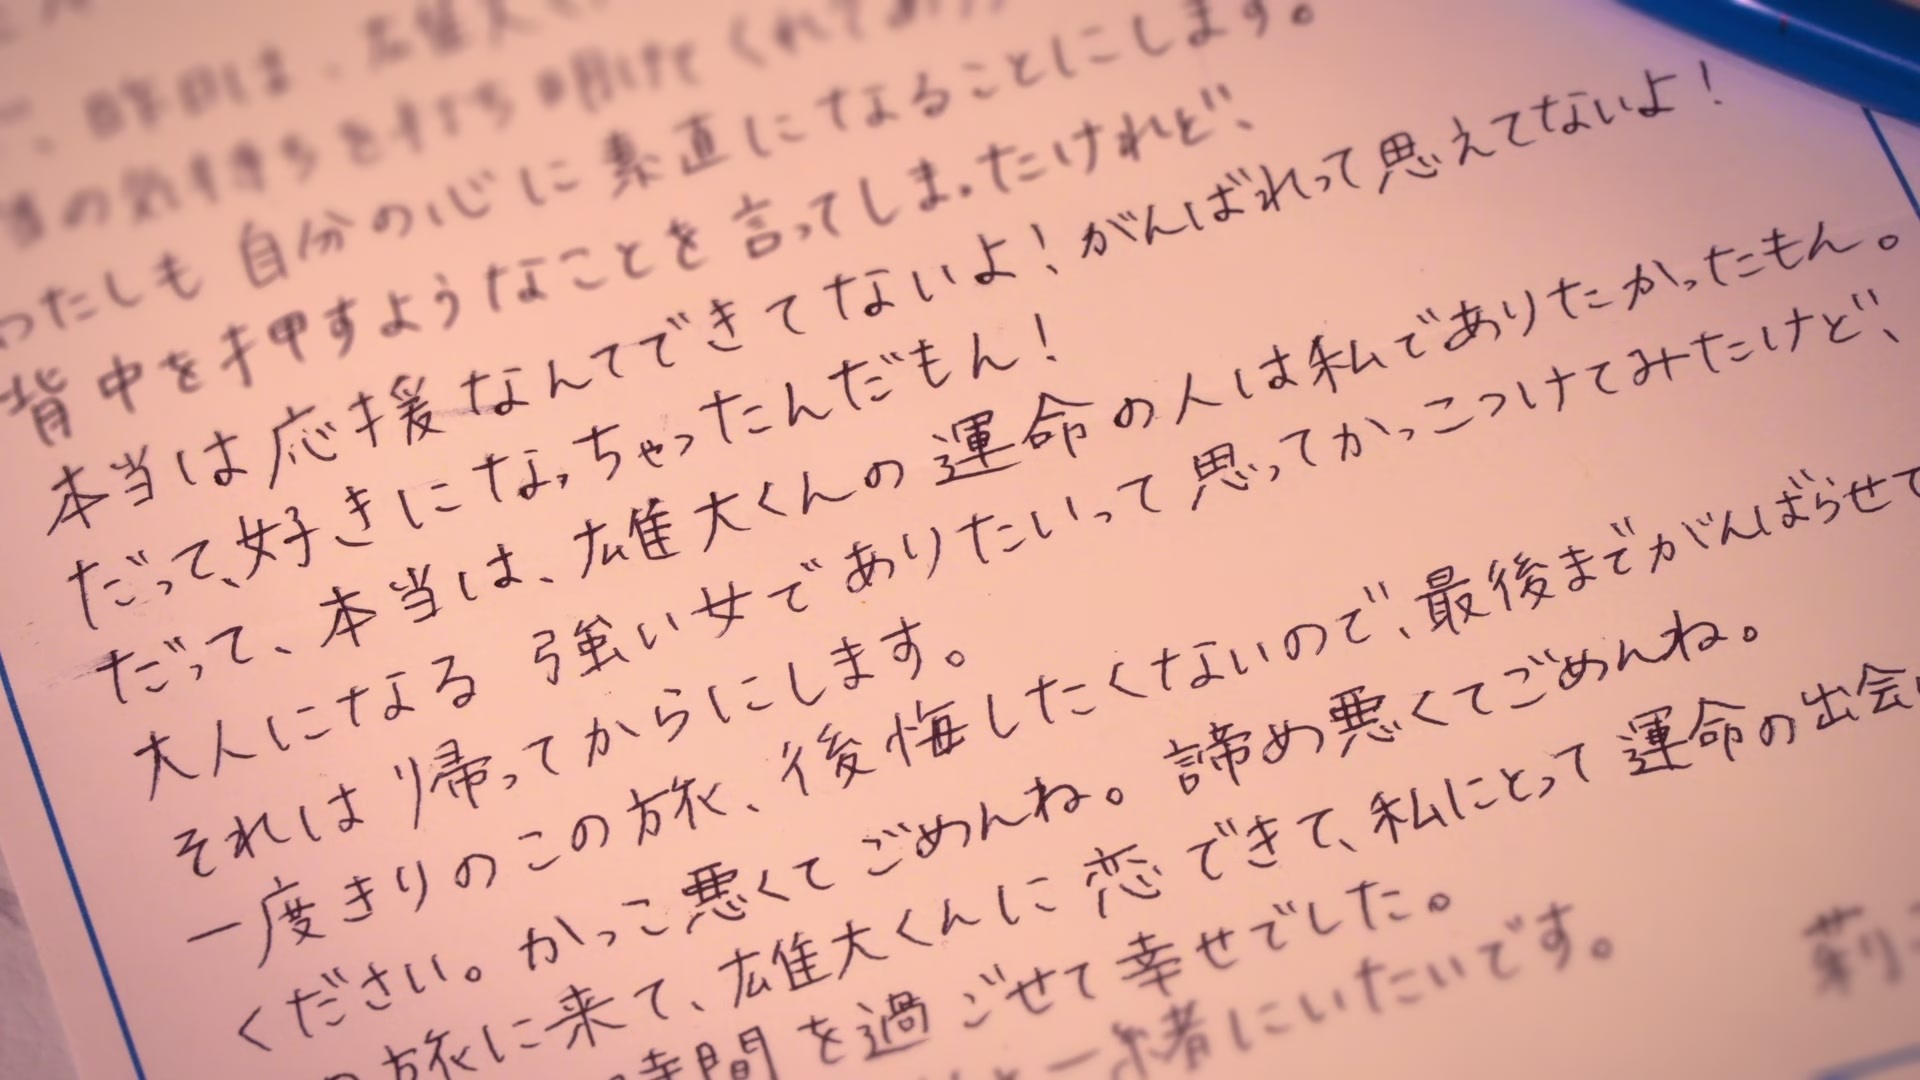 、昨日は、雄大く
気持ちを打ち明けてくれてあり
わたしも自分の心に素直になることにします。
背中を押すようなことを言ってしまったけれど、
本当は応援なんてできてないよ！がんばれって思えてないよ！
だって、好きになっちゃったんだもん！
だって、本当は、雄大くんの運命の人は私でありたかったもん。
大人になる強い女でありたいって思ってかっこつけてみたけど、
それは帰ってからにします。
一度きりのこの旅、後悔したくないので、最後までがんばらせて
ください。かっこ悪くてごめんね。諦め悪くてごめんね。
旅に来て、雄大くんに恋できて、私にとって運命の出会い
時間を過ごせて幸せでした。
と一緒にいたいです。
莉